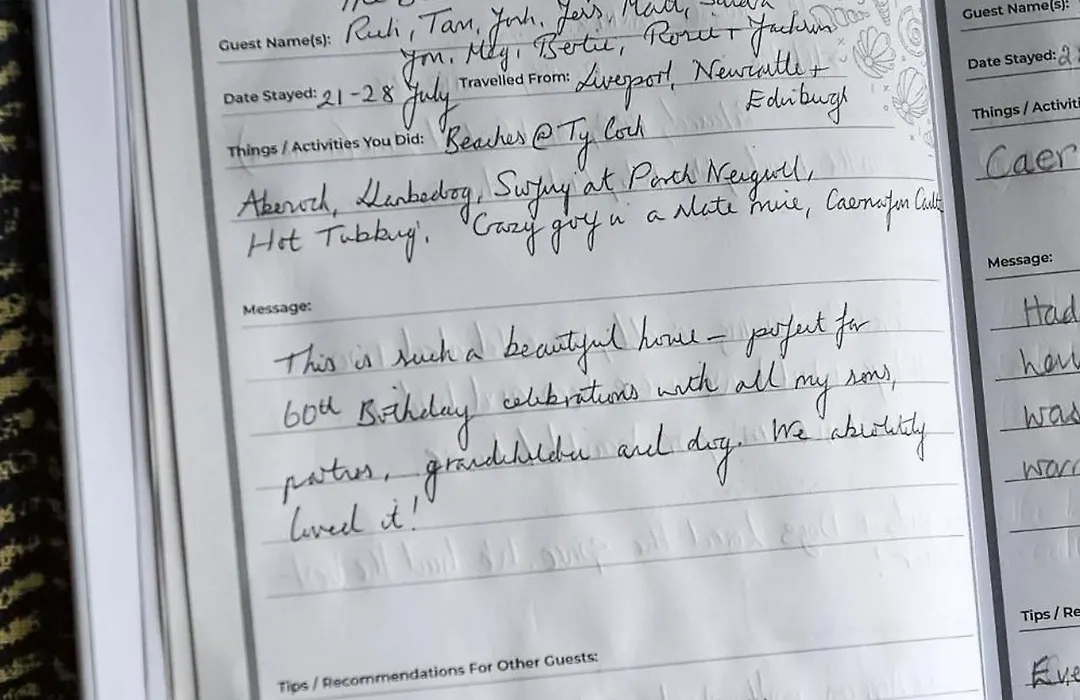 Guest Name(s): Ruth, Tam, Josh, Jess, Matt,
Jon, Meg, Bertie, Rosie + Jackson
Date Stayed: 21-28 July Travelled From: Liverpool, Newcastle +
Edinburgh
Things / Activities You Did: Beaches @ Ty Coch
Abersoch, Llanbedrog, Surfing at Porth Neigwl,
Hot Tubbing. Crazy golf in a slate mine, Caernarfon Castle
Message:
This is such a beautiful home – perfect for
60th Birthday celebrations with all my sons,
partners, grandchildren and dog. We absolutely
loved it!
Tips / Recommendations For Other Guests:
Guest Name(s):
Date Stayed: 2
Things / Activiti
Caer
Message:
Had
was
Tips / Re
Eve